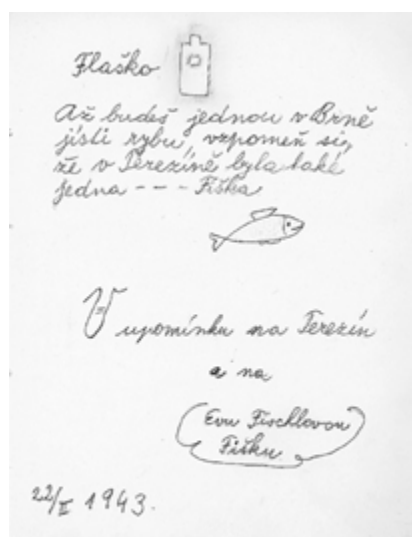 Flaško
Až budeš jednou v Brně
jísti rybu, vzpomeň si,
že v Terezíně byla také
jedna - - - Fiška
V upomínku na Terezín
a na
Evu Fischlovou
Fišku.
22/II 1943.